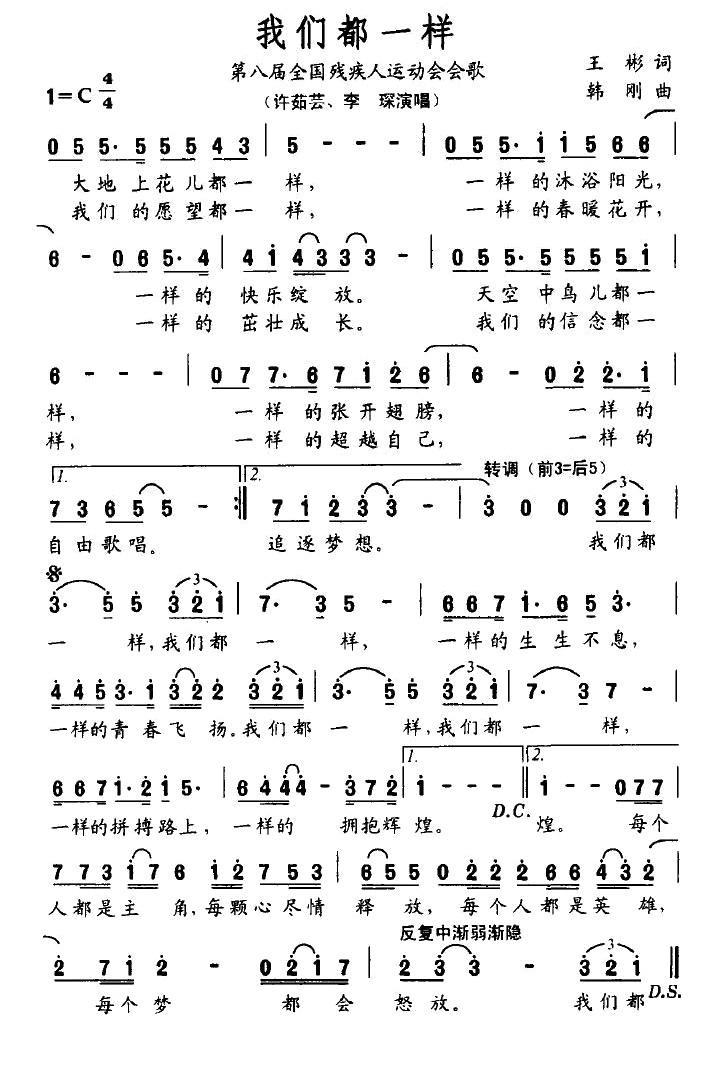 我们都一样
第八届全国残疾人运动会会歌
王 彬 词
1=C 4/4
（许茹芸、李 琛演唱）
韩 刚 曲
0 5 5· 5 5 5 4 3 | 5 - - - | 0 5 5· i i 5 6 6 |
大地 上花儿都一 样， 一样 的沐浴阳光，
我们 的愿望都一 样， 一样 的春暖花开，
6 - 0 6 5· 4 | 4 i 4 3 3 3 - | 0 5 5· 5 5 5 5 i |
一样的 快乐绽 放。 天空 中鸟儿都一
一样的 茁壮成 长。 我们 的信念都一
6 - - - | 0 7 7· 6 7 i 2 6 | 6 - 0 2 2· i |
样， 一样 的张开翅膀， 一样的
样， 一样 的超越自己， 一样的
1. 2. 转调（前3=后5）
7 3 6 5 5 - :‖ 7 i 2 3 3 - | 3 0 0 3 2 i |
自由歌唱。 追逐梦想。 我们都
3· 5 5 3 2 i | 7· 3 5 - | 6 6 7 i· 6 5 3· |
一 样，我们都 一 样， 一样的生生不息，
4 4 5 3· i 3 2 2 3 2 i | 3· 5 5 3 2 i | 7· 3 7 - |
一样的青春飞 扬。我们都 一 样，我们都 一 样，
1. 2.
6 6 7 i· 2 i 5· | 6 4 4 4 - 3 7 2 | i - - - ‖ i - - 0 7 7 |
一样的拼搏路上， 一样的 拥抱辉 煌。 D.C. 煌。 每个
7 7 3 i 7 6 i 2 7 5 3 | 6 5 5 0 2 2 2 6 6 4 3 2 |
人都是主 角，每颗心尽情 释 放， 每个人都是英 雄，
反复中渐弱渐隐
2 7 i 2 - 0 2 i 7 | 2 3 3 - 3 2 i ‖
每个梦 都 会 怒放。 我们都 D.S.